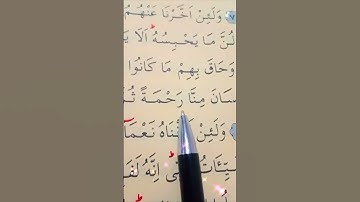 ٧ وَلَئِنْ اَخَّرْنَا عَنْهُمُ
لُنَّ مَا يَحْبِسُهُ اَلَا يَ
وَحَاقَ بِهِمْ مَا كَانُوا
سَانَ مِنَّا رَحْمَةً ثُمَّ
وَلَئِنْ نَعْمَا
اِنَّهُ لَفَ